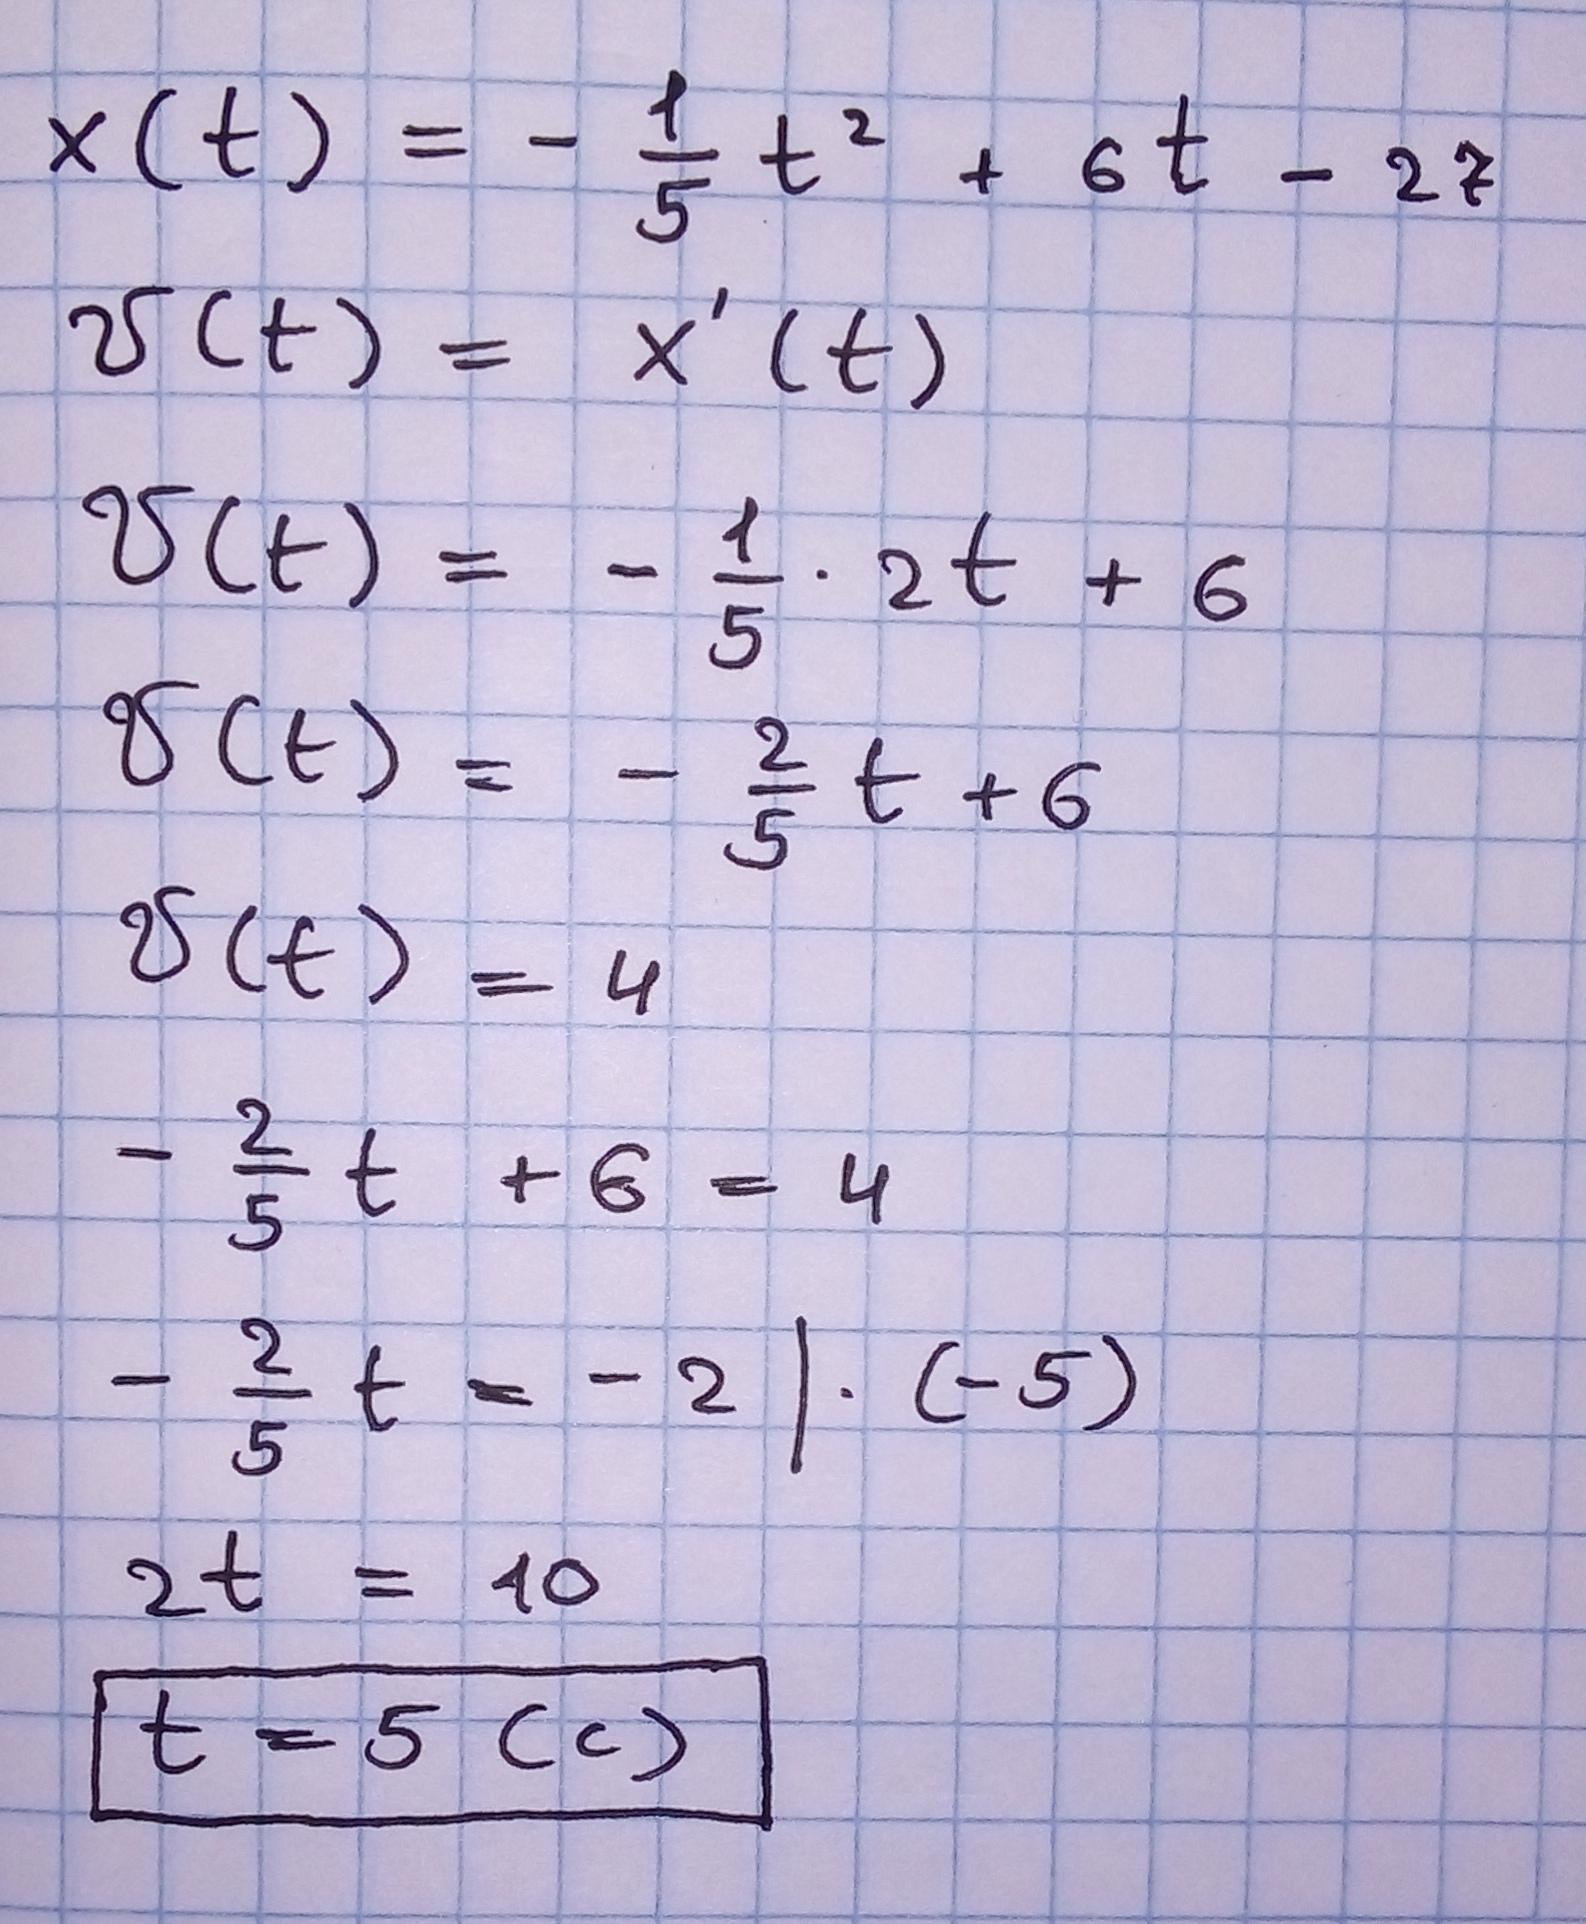 x(t) = - 1/5 t² + 6t - 27
v(t) = x'(t)
v(t) = - 1/5 · 2t + 6
v(t) = - 2/5 t + 6
v(t) = 4
- 2/5 t + 6 = 4
- 2/5 t = - 2 | · (-5)
2t = 10
t = 5 (c)